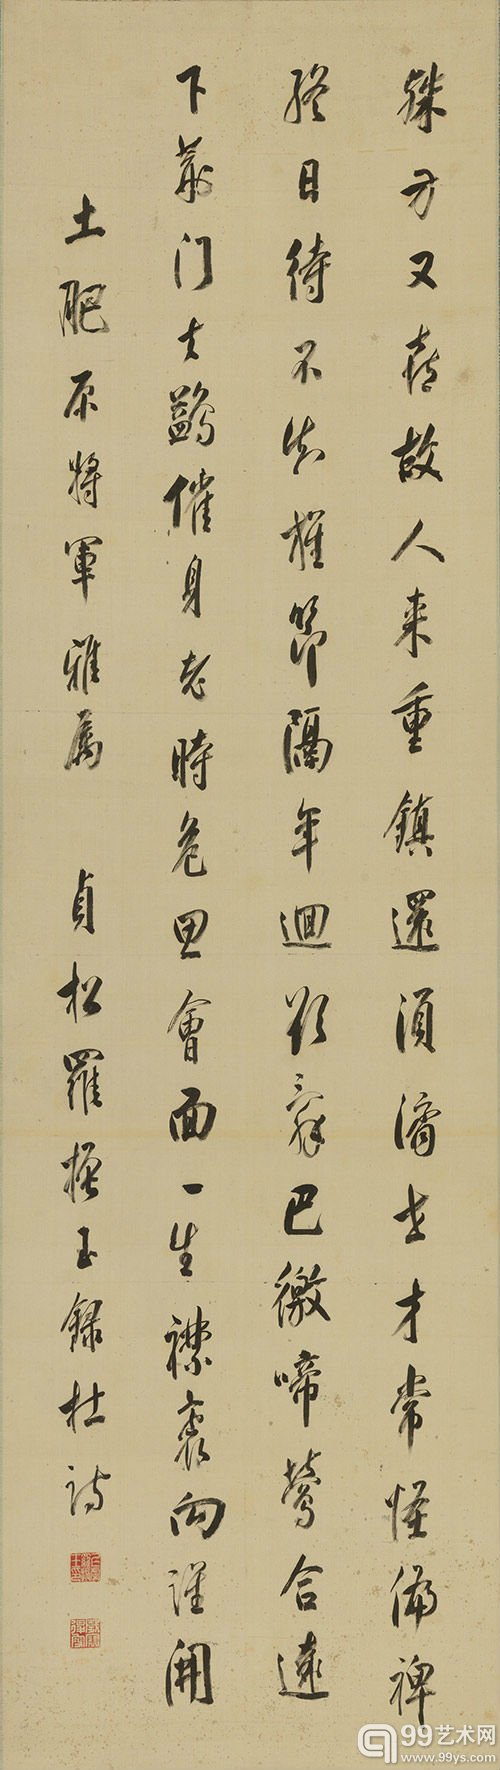 殊方又喜故人来重鎮還須濟世才常怪偏裨
終日待不知旌節隔年迴欲辭巴徼啼鶯合遠
下荊門去鷁催身老時危思會面一生襟袌向誰開
土肥原將軍雅屬 貞松羅振玉錄杜詩
99艺术网
www.99ys.com